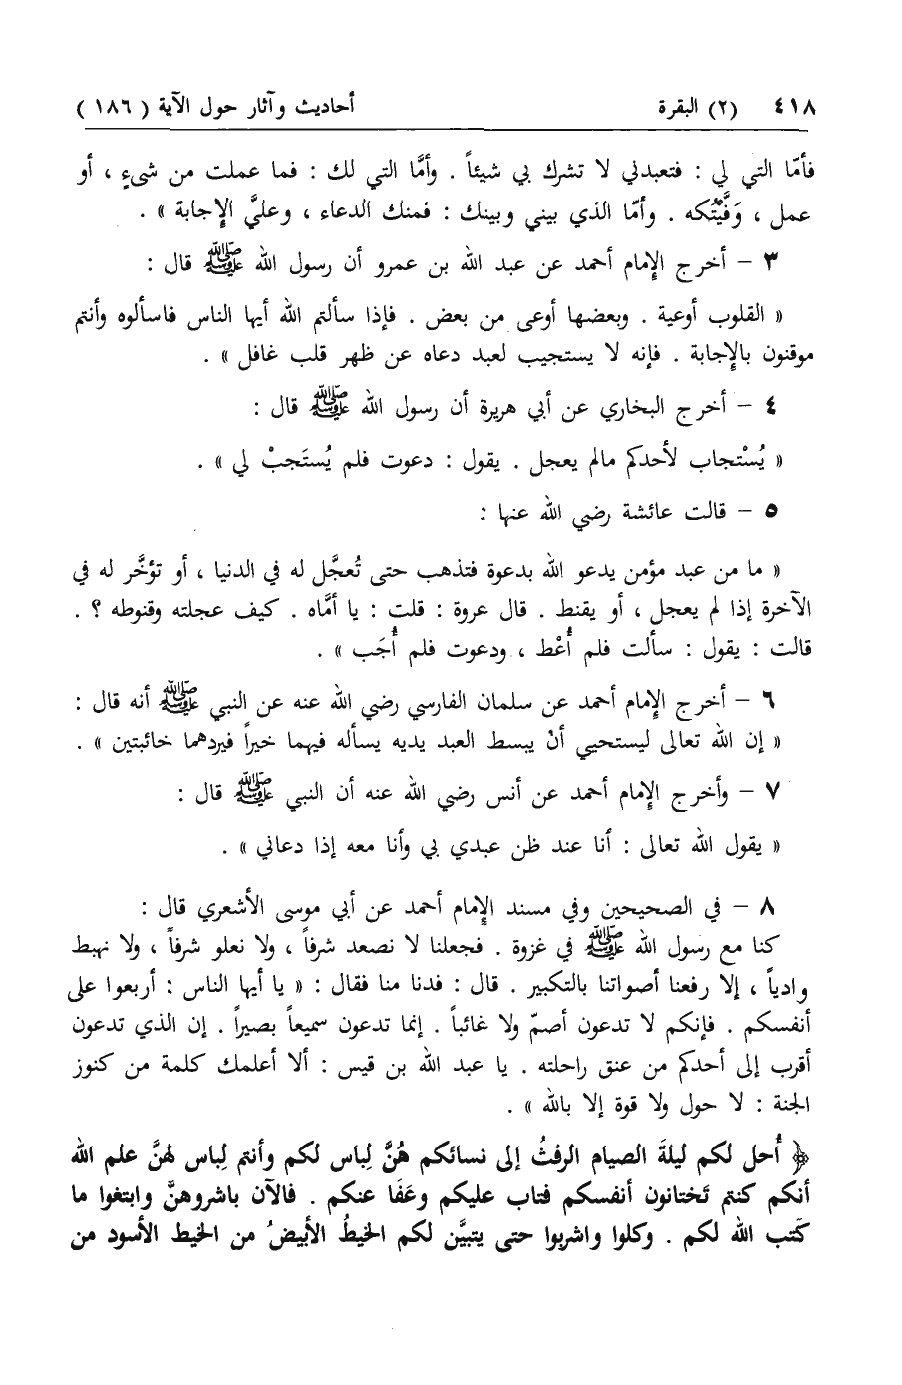 ٤١٨ (٢) البقرة أحاديث وآثار حول الآية ( ١٨٦ )
فأمّا التي لي : فتعبدني لا تشرك بي شيئاً . وأمَّا التي لك : فما عملت من شيءٍ ، أو
عمل ، وَفَّيْتُكه . وأمّا الذي بيني وبينك : فمنك الدعاء ، وعليَّ الإجابة » .
٣ – أخرج الإمام أحمد عن عبد الله بن عمرو أن رسول الله ﷺ قال :
« القلوب أوعية . وبعضها أوعى من بعض . فإذا سألتم الله أيها الناس فاسألوه وأنتم
موقنون بالإجابة . فإنه لا يستجيب لعبد دعاه عن ظهر قلب غافل » .
٤ – أخرج البخاري عن أبي هريرة أن رسول الله ﷺ قال :
« يُسْتجاب لأحدكم مالم يعجل . يقول : دعوت فلم يُستَجبْ لي » .
٥ – قالت عائشة رضي الله عنها :
« ما من عبد مؤمن يدعو الله بدعوة فتذهب حتى تُعجَّل له في الدنيا ، أو تؤخَّر له في
الآخرة إذا لم يعجل ، أو يقنط . قال عروة : قلت : يا أمَّاه . كيف عجلته وقنوطه ؟ .
قالت : يقول : سألت فلم أُعْط ، ودعوت فلم أُجَب » .
٦ – أخرج الإمام أحمد عن سلمان الفارسي رضي الله عنه عن النبي ﷺ أنه قال :
« إن الله تعالى ليستحيي أنْ يبسط العبد يديه يسأله فيهما خيراً فيردهما خائبتين » .
٧ – وأخرج الإمام أحمد عن أنس رضي الله عنه أن النبي ﷺ قال :
« يقول الله تعالى : أنا عند ظن عبدي بي وأنا معه إذا دعاني » .
٨ – في الصحيحين وفي مسند الإمام أحمد عن أبي موسى الأشعري قال :
كنا مع رسول الله ﷺ في غزوة . فجعلنا لا نصعد شرفاً ، ولا نعلو شرفاً ، ولا نهبط
وادياً ، إلا رفعنا أصواتنا بالتكبير . قال : فدنا منا فقال : « يا أيها الناس : أربعوا على
أنفسكم . فإنكم لا تدعون أصمّ ولا غائباً . إنما تدعون سميعاً بصيراً . إن الذي تدعون
أقرب إلى أحدكم من عنق راحلته . يا عبد الله بن قيس : ألا أعلمك كلمة من كنوز
الجنة : لا حول ولا قوة إلا بالله » .
﴿ أُحل لكم ليلةَ الصيام الرفثُ إلى نسائكم هُنَّ لِباس لكم وأنتم لِباس لهنَّ علم الله
أنكم كنتم تَختانون أنفسكم فتاب عليكم وعَفَا عنكم . فالآن باشروهنَّ وابتغوا ما
كَتب الله لكم . وكلوا واشربوا حتى يتبيَّن لكم الخيطُ الأبيضُ من الخيط الأسود من